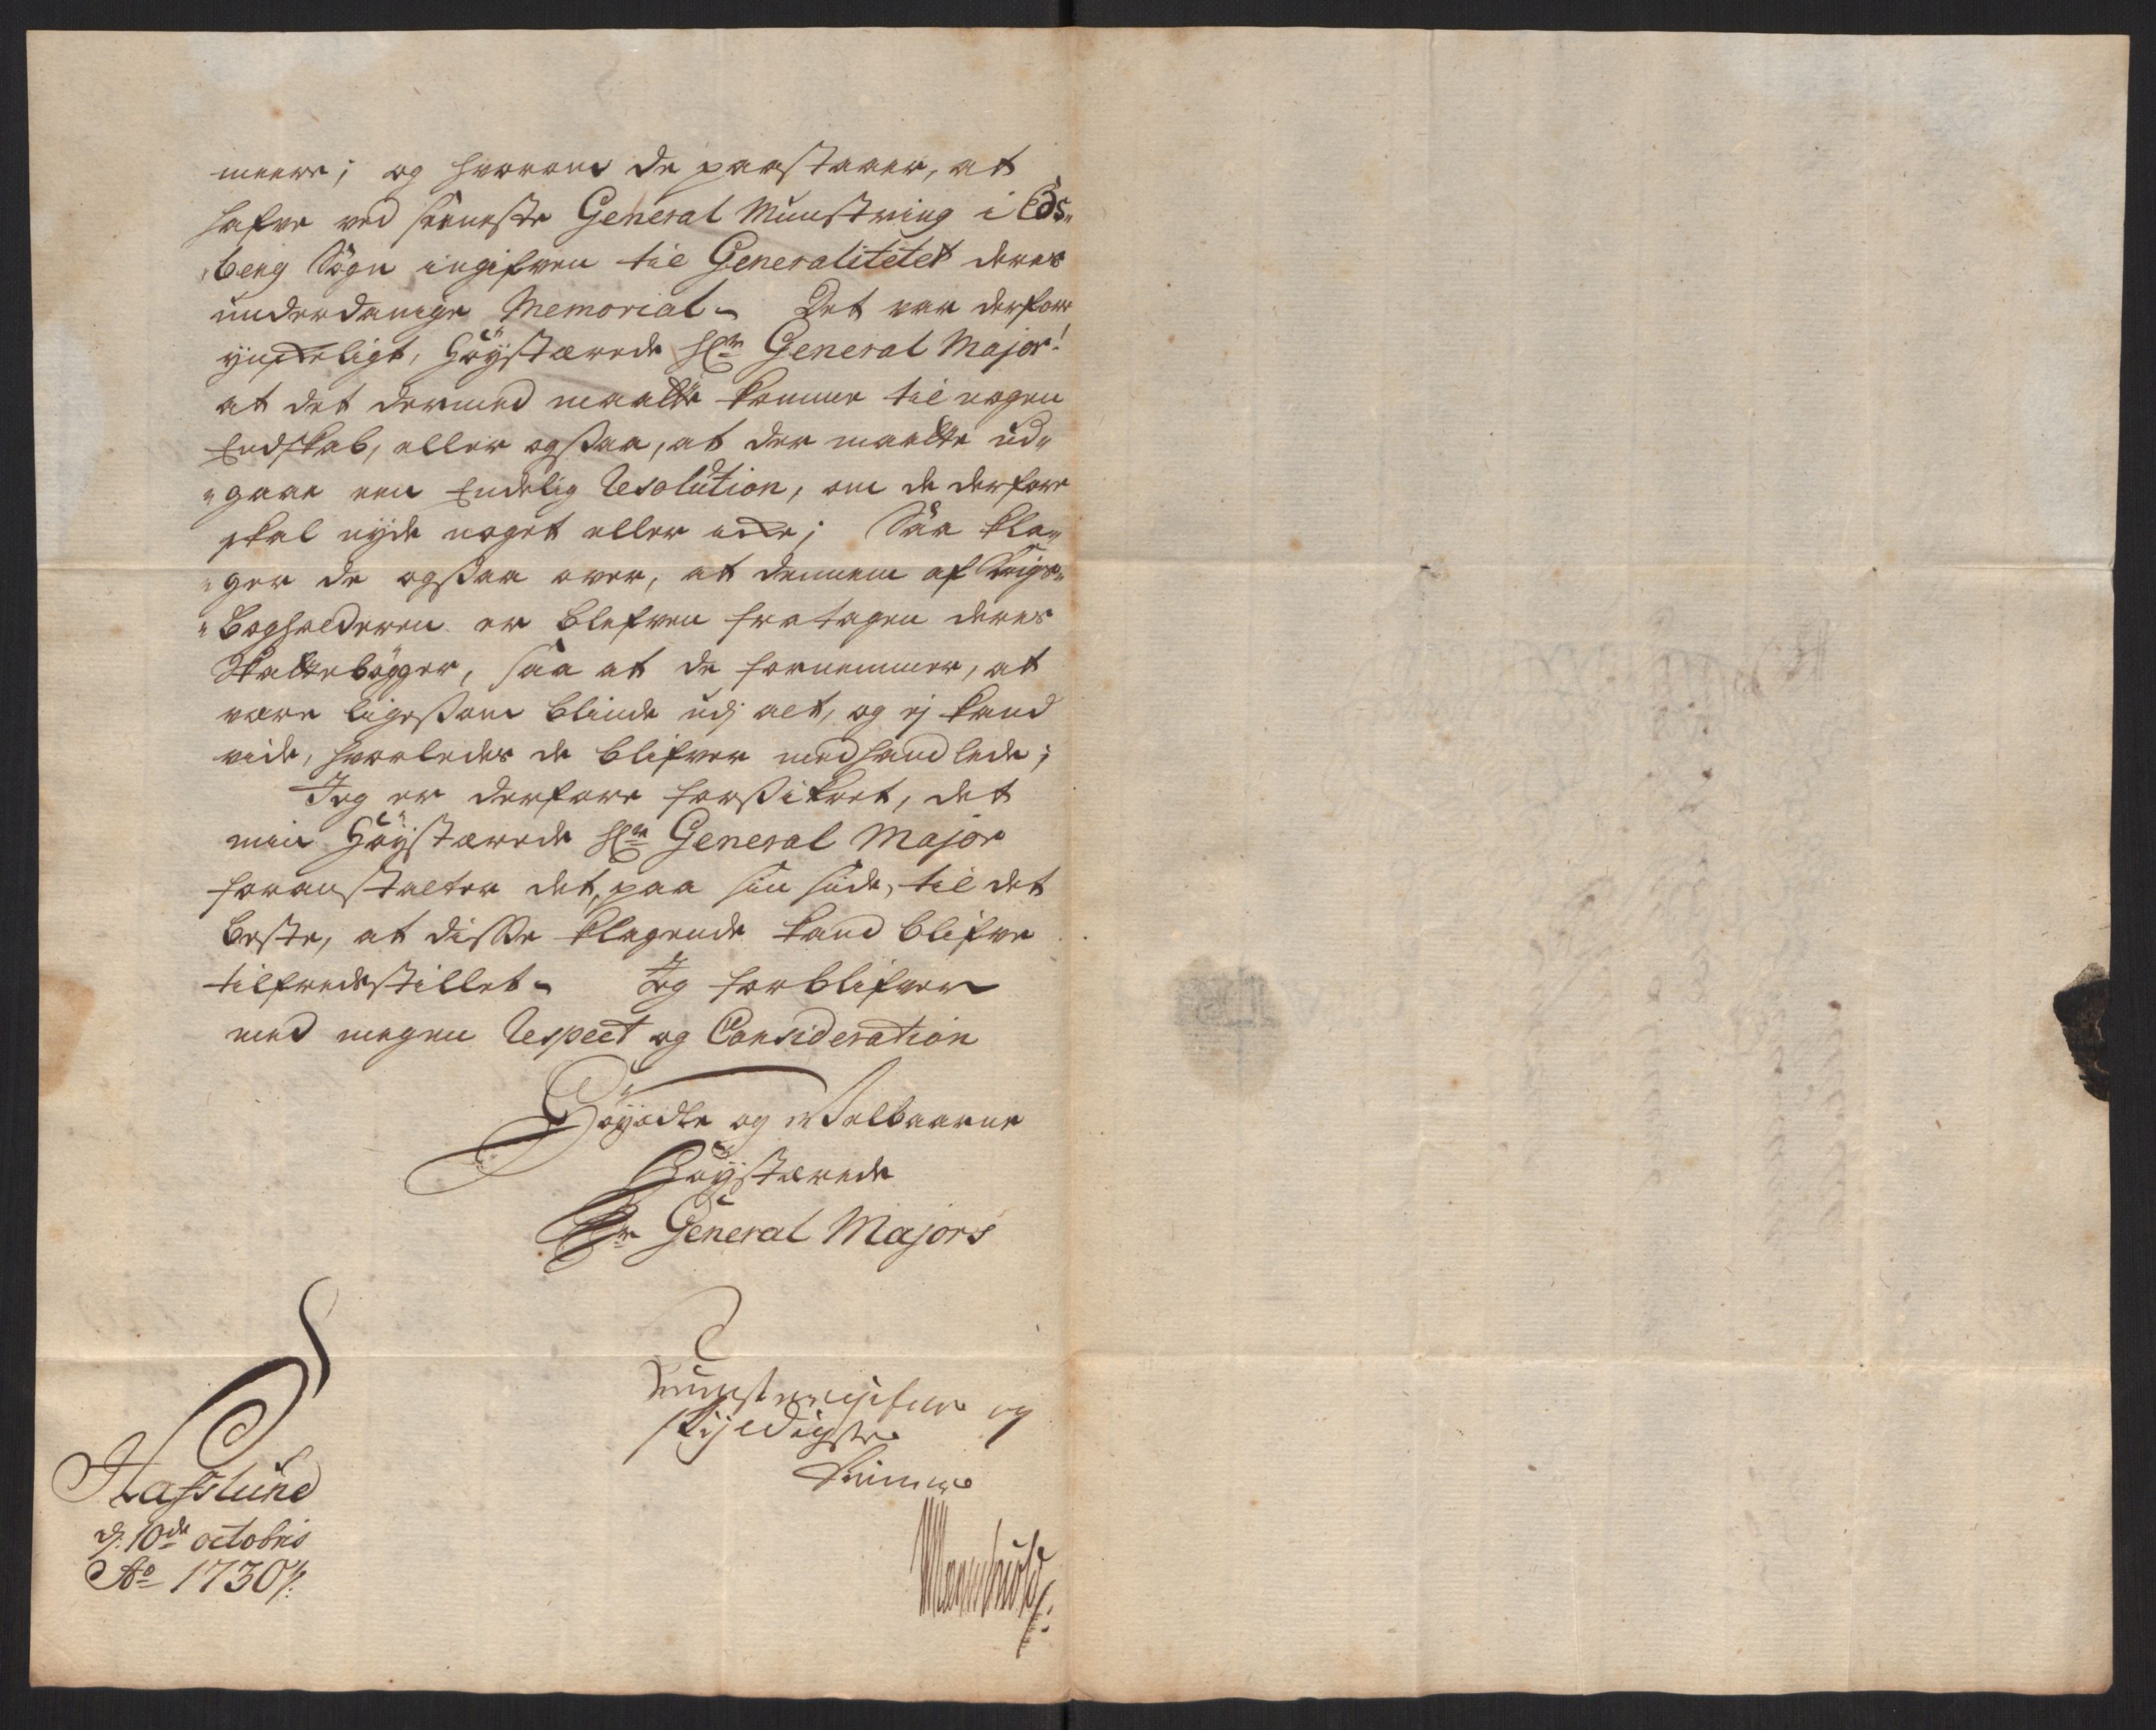 meere; og hvorom de paastaaer, at
hafve ved seeneste General Munstring i Eds„
„berg Sogn ingifven til Generalitetet deres
underdanige Memorial – Det var derfore
ynckeligt, Höystærede Hr General Major!
at det dermed maatte komme til nogen
Endskab, eller ogsaa, at der maatte ud„
„gaae een Endelig Resolution, om de derfore
skal nyde noget eller icke; Saa kla„
„ger de ogsaa over, at dennem af Krigs„
„Bogholderen er blefven fratagen deres
Skattebögger, saa at de fornemmer, at
være ligesom blinde udj alt, og ej kand
vide, hvorledes de blifver medhandlede;
Jeg er derfore forsikret, det
min Höystærede Hr General Major
foranstalter det, paa sin side, til det
beste, at disse klagende kand blifve
tilfredsstillet – Jeg forblifver
med megen Respect og Consideration
Höyædle og Welbaarne
Höystærede
Hr General Majors
tienstvilligste og
skyldigste
tiener
Hafslund
d. 10de octobris
Ao 1730